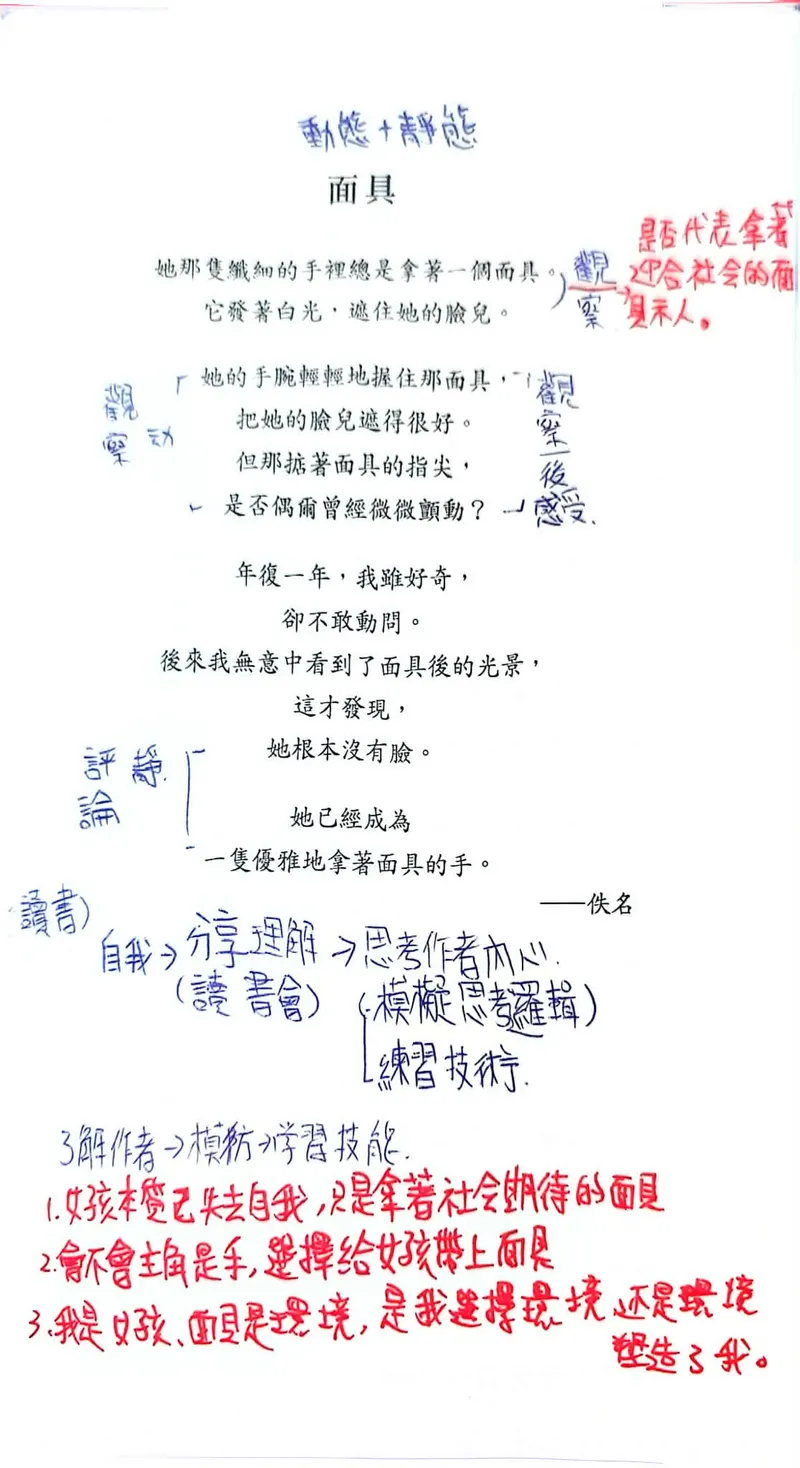 動態+靜態
面具
她那隻纖細的手裡總是拿著一個面具。
它發著白光,遮住她的臉兒。
觀察
是否代表拿著
迎合社會的面
具示人。
她的手腕輕輕地握住那面具,
把她的臉兒遮得很好。
但那掂著面具的指尖,
是否偶爾曾經微微顫動?
觀察 动
觀察後感受.
年復一年,我雖好奇,
卻不敢動問。
後來我無意中看到了面具後的光景,
這才發現,
她根本沒有臉。
評論 靜.
她已經成為
一隻優雅地拿著面具的手。
——佚名
讀書)
自我→分享理解→思考作者內心.
(讀書會) (模擬思考邏輯)
練習技術.
了解作者→模仿→学習技能.
1.女孩本質已失去自我,只是拿著社会期待的面具
2.會不會主角是手,選擇給女孩帶上面具
3.我是女孩、面具是環境,是我選擇環境还是環境
塑造了我。